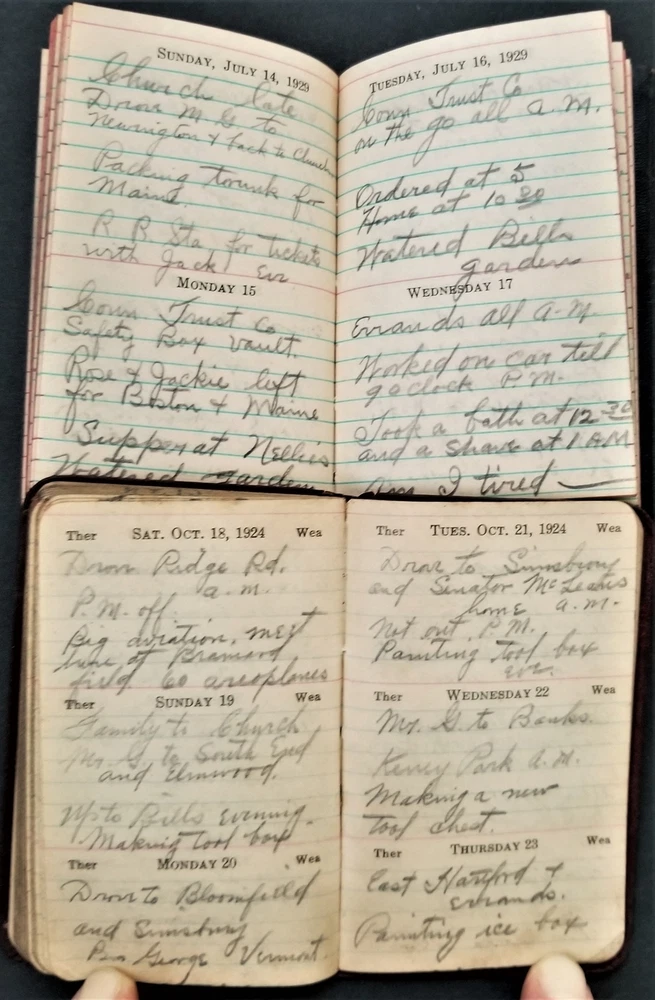 SUNDAY, JULY 14, 1929
Church late
Drove M G to
Newington & back to Church
Packing trunk for
Maine.
R R Sta for tickets
with Jack Eve
MONDAY 15
Conn Trust Co
Safety Box vault.
Rose & Jackie left
for Boston & Maine
Supper at Nellies
Watered garden
TUESDAY, JULY 16, 1929
Conn Trust Co
on the go all a.m.
Ordered at 5
Home at 10 30
Watered Bills
gardens
WEDNESDAY 17
Errands all a.m.
Worked on car till
9 oclock P.M.
Took a bath at 12 30
and a shave at 1 AM
Am I tired —
Ther SAT. OCT. 18, 1924 Wea
Drove Ridge Rd.
a.m.
P.M. off.
Big aviation meet
here at Brainard
field 60 areoplanes
Ther SUNDAY 19 Wea
Family to Church
Mr. G to South End
and Elmwood.
Up to Bills evening.
Making tool box
Ther MONDAY 20 Wea
Drove to Bloomfield
and Simsbury
George Vermont.
Ther TUES. OCT. 21, 1924 Wea
Drove to Simsbury
and Senator McLeans
home a.m.
Not out P.M.
Painting tool box
eve.
Ther WEDNESDAY 22 Wea
Mr. G to Banks.
Keney Park a.m.
Making a new
tool chest.
Ther THURSDAY 23 Wea
East Hartford &
errands.
Painting ice box